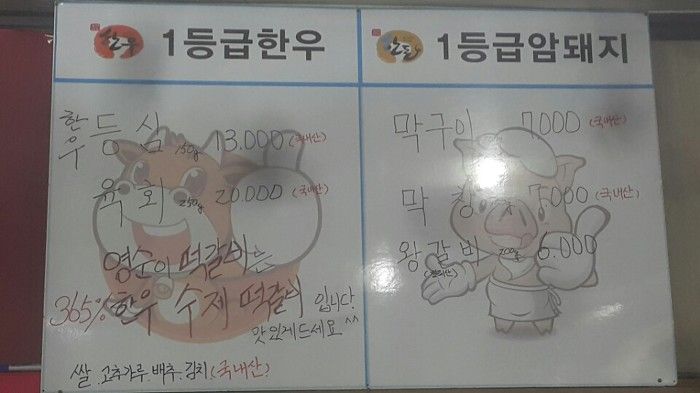 한우 1등급한우
한우 등심 150g 13.000 (국내산)
육회 250g 20.000 (국내산)
영순이 떡갈비는
365% 한우 수제 떡갈비 입니다.
맛있게드세요 ^^
쌀.고추가루.배추.김치(국내산)
1등급암돼지
막구이 7.000 (국내산)
막창 7.000 (국내산)
왕갈비 200g 6.000